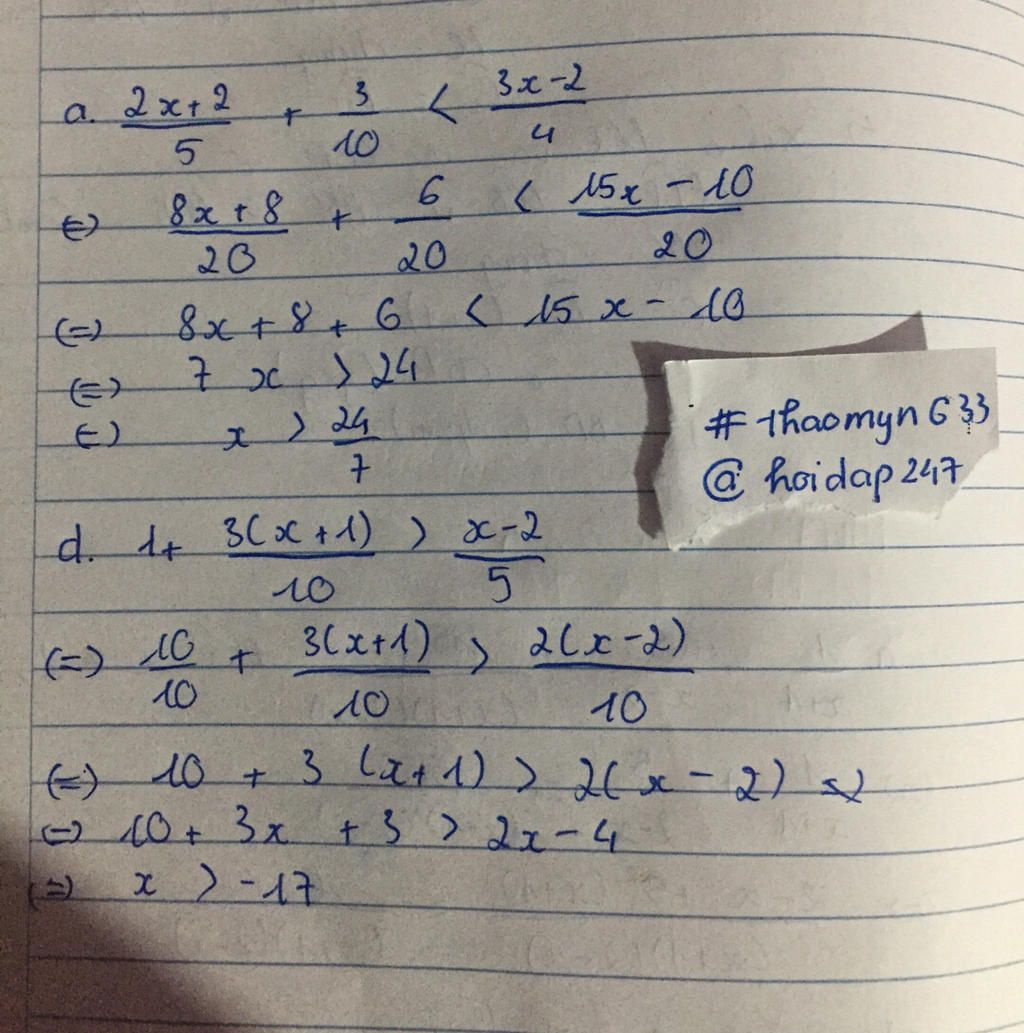 a. (2x+2)/5 + 3/10 < (3x-2)/4
⇔ (8x+8)/20 + 6/20 < (15x-10)/20
(=) 8x+8+6 < 15x-10
(=) 7x > 24
⇔ x > 24/7
# thaomyn633
@ hoidap247
d. 1+ 3(x+1)/10 > (x-2)/5
(=) 10/10 + 3(x+1)/10 > 2(x-2)/10
(=) 10 + 3(x+1) > 2(x-2)
(=) 10+3x+3 > 2x-4
(=) x > -17